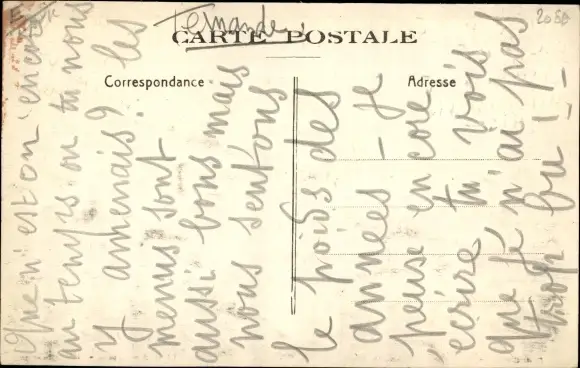 Fernande
CARTE POSTALE
Correspondance
Adresse
2080
Que n'est on encore
au temps ou tu nous
y amenais? les
menus sont
aussi bons mais
nous sentons
le poids des
années - Je
pense encore
écrire, tu vois
que je n'ai pas
trop bu!-